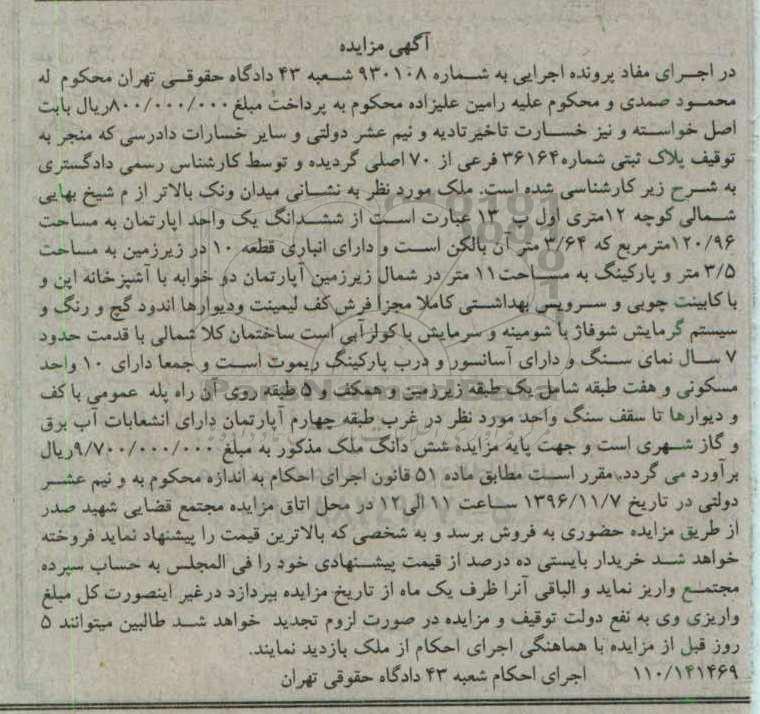 آگهی مزایده
در اجرای مفاد پرونده اجرایی به شماره ۹۳۰۱۰۸ شعبه ۴۳ دادگاه حقوقی تهران محکوم له
محمود صمدی و محکوم علیه رامین علیزاده محکوم به پرداخت مبلغ ۸۰۰/۰۰۰/۰۰۰ریال بابت
اصل خواسته و نیز خسارت تاخیرتادیه و نیم عشر دولتی و سایر خسارات دادرسی که منجر به
توقیف پلاک ثبتی شماره۳۶۱۶۴ فرعی از ۷۰ اصلی گردیده و توسط کارشناس رسمی دادگستری
به شرح زیر کارشناسی شده است. ملک مورد نظر به نشانی میدان ونک بالاتر از م شیخ بهایی
شمالی کوچه ۱۲متری اول پ ۱۳ عبارت است از ششدانگ یک واحد اپارتمان به مساحت
۱۲۰/۹۶مترمربع که ۳/۶۴ متر آن بالکن است و دارای انباری قطعه ۱۰ در زیرزمین به مساحت
۳/۵ متر و پارکینگ به مساحت۱۱ متر در شمال زیرزمین آپارتمان دو خوابه با آشپزخانه اپن و
با کابینت چوبی و سرویس بهداشتی کاملا مجزا فرش کف لیمینت ودیوارها اندود گچ و رنگ و
سیستم گرمایش شوفاژ با شومینه و سرمایش با کولرآبی است ساختمان کلا شمالی با قدمت حدود
۷ سال نمای سنگ و دارای آسانسور و درب پارکینگ ریموت است و جمعا دارای ۱۰ واحد
مسکونی و هفت طبقه شامل یک طبقه زیرزمین و همکف و ۵ طبقه روی آن راه پله عمومی با کف
و دیوارها تا سقف سنگ واحد مورد نظر در غرب طبقه چهارم آپارتمان دارای انشعابات آب برق
و گاز شهری است و جهت پایه مزایده شش دانگ ملک مذکور به مبلغ ۹/۷۰۰/۰۰۰/۰۰۰ریال
برآورد می گردد. مقرر است مطابق ماده ۵۱ قانون اجرای احکام به اندازه محکوم به و نیم عشر
دولتی در تاریخ ۱۳۹۶/۱۱/۷ ساعت ۱۱ الی ۱۲ در محل اتاق مزایده مجتمع قضایی شهید صدر
از طریق مزایده حضوری به فروش برسد و به شخصی که بالاترین قیمت را پیشنهاد نماید فروخته
خواهد شد خریدار بایستی ده درصد از قیمت پیشنهادی خود را فی المجلس به حساب سپرده
مجتمع واریز نماید و الباقی آنرا ظرف یک ماه از تاریخ مزایده بپردازد درغیر اینصورت کل مبلغ
واریزی وی به نفع دولت توقیف و مزایده در صورت لزوم تجدید خواهد شد طالبین میتوانند ۵
روز قبل از مزایده با هماهنگی اجرای احکام از ملک بازدید نمایند.
۱۱۰/۱۴۱۴۶۹ اجرای احکام شعبه ۴۳ دادگاه حقوقی تهران